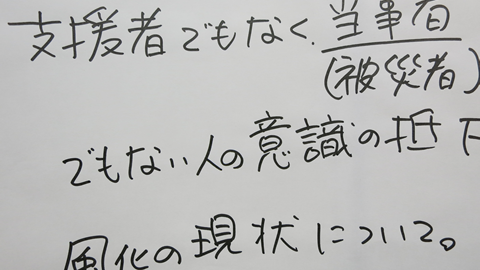 支援者でもなく、当事者
(被災者)
でもない人の意識の低下
風化の現状について。